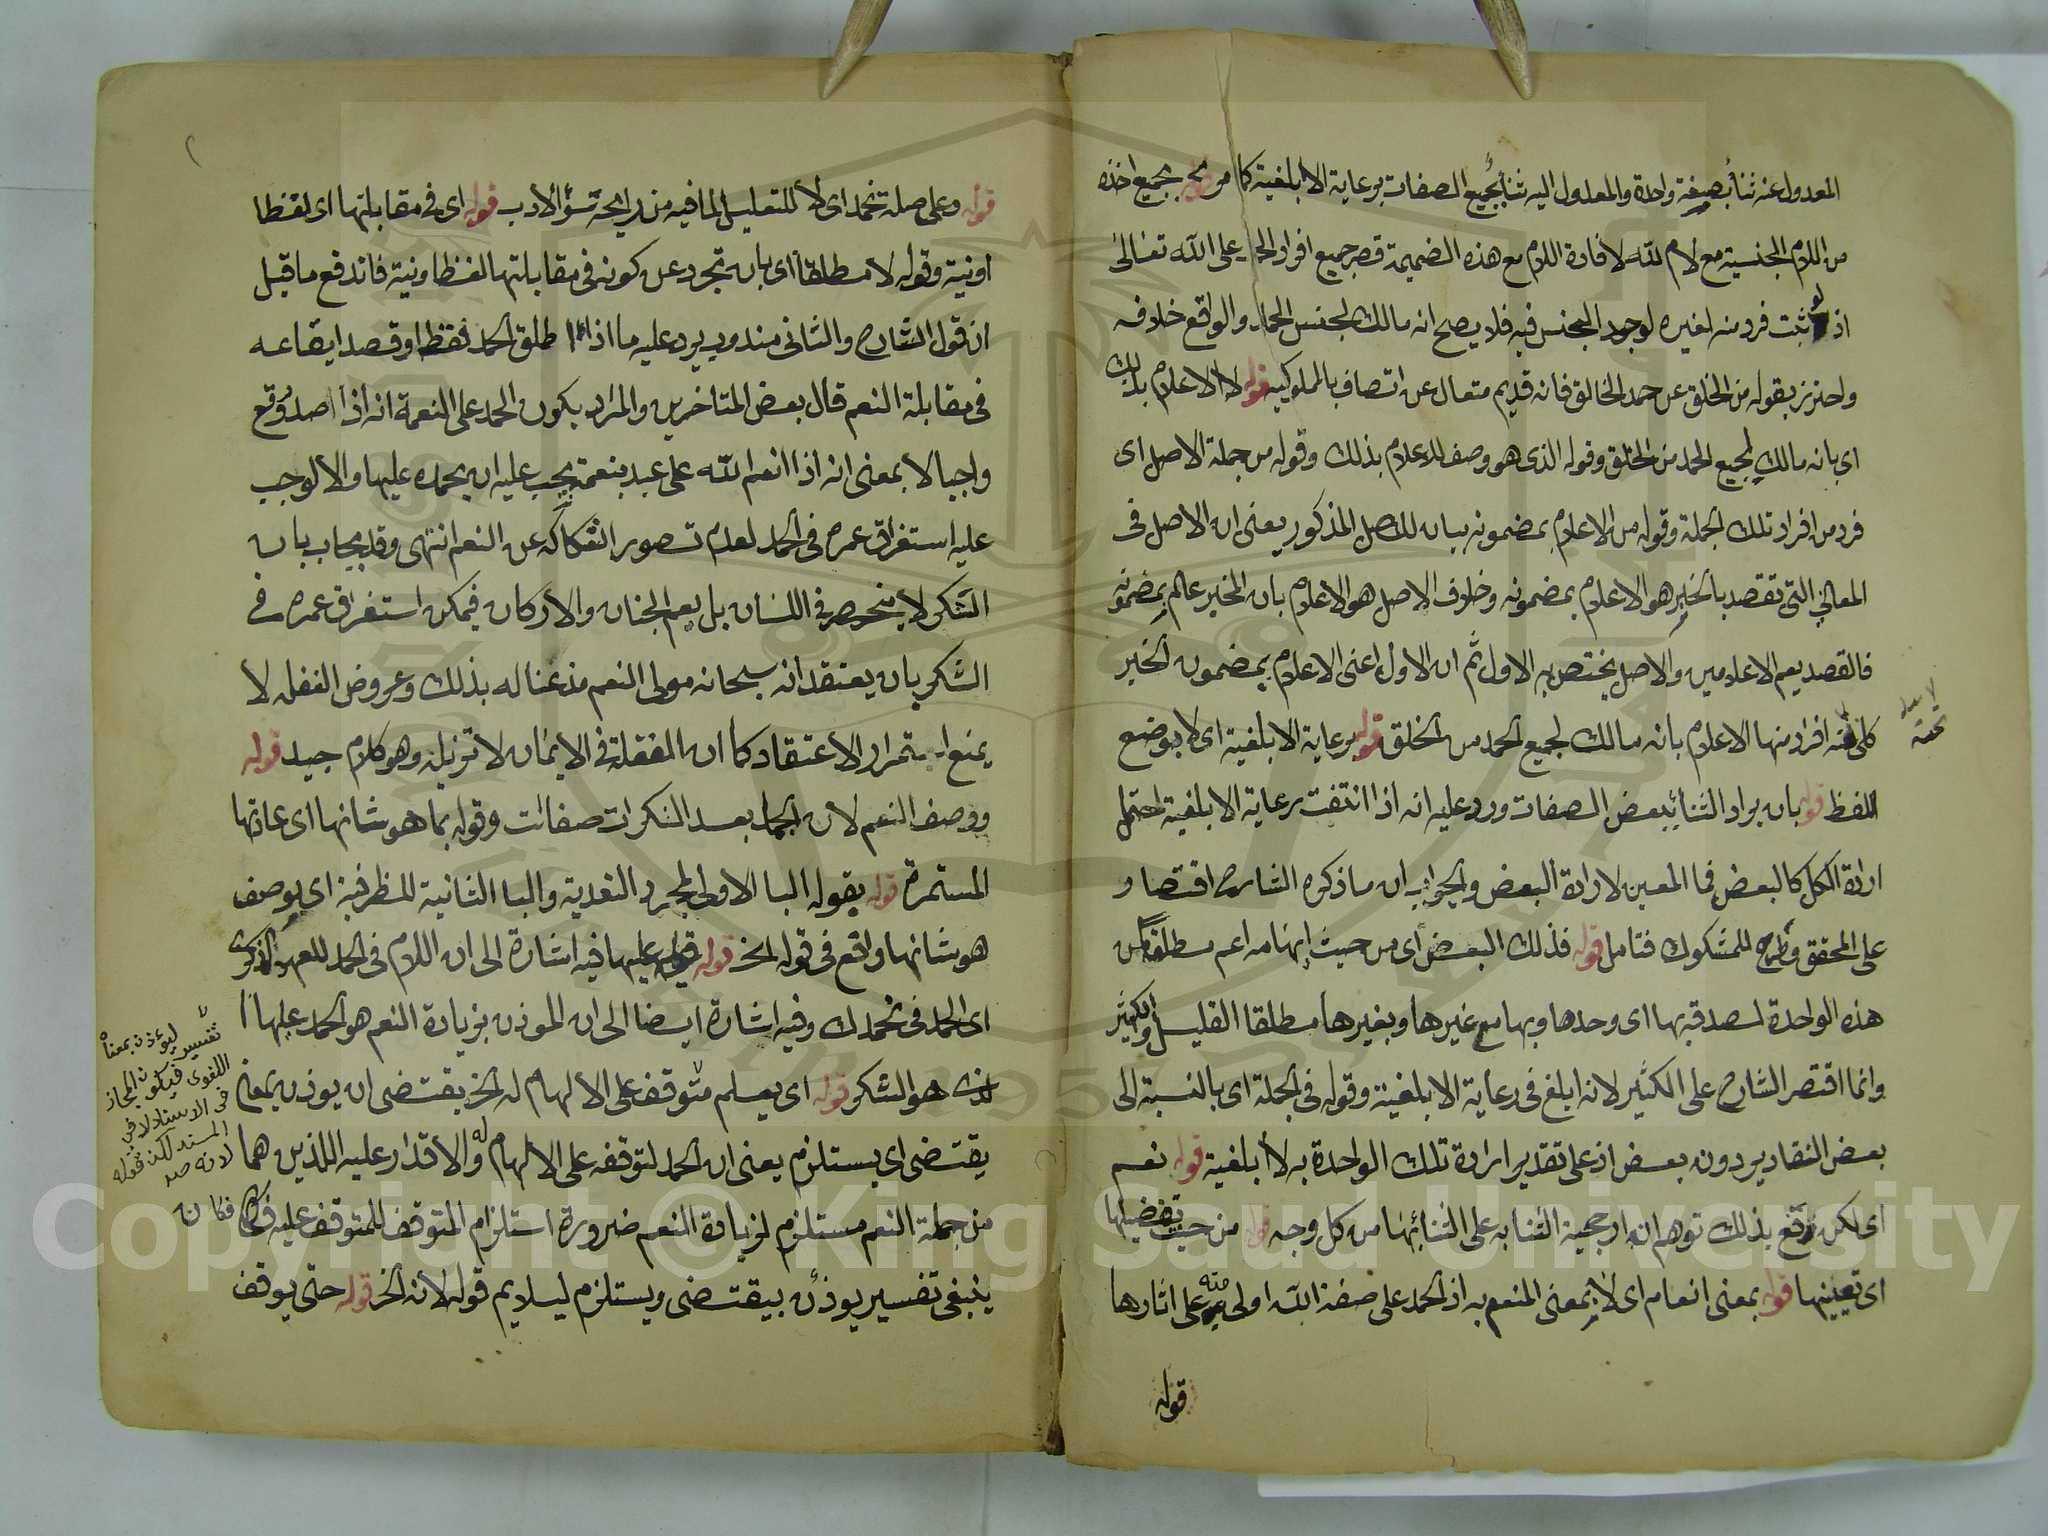 المعدول عنه ثنأ بصيغة واحدة والمعدول اليه ثنأ بجميع الصفات برعاية الابلغية كما مر قوله بجميع اخذه
من اللام الجنسية مع لام لله لافادة اللام مع هذه الضميمة قصر جميع افراد الحمد على الله تعالى
اذ لو ثبت فرد منه لغيره لوجود الجنس فيه فلا يصح انه مالك لجنس الحمد والواقع خلافه
واحترز بقوله من الخلق عن حمد الخالق فانه قديم متعال عن اتصاف بالملوكيه قوله لا الاعلام بذلك
اى بانه مالك لجميع الحمد من الخلق وقوله الذى هو وصف للاعلام بذلك وقوله من جملة الاصل اى
فرد من افراد تلك الجملة وقوله من الاعلام بمضمونه بيان للاصل المذكور يعنى ان الاصل فى
المعاني التى تقصد بالخبر هو الاعلام بمضمونه وخلاف الاصل هو الاعلام بان المخبر عالم بمضمونه
فالقصد يعم الاعلامين والاصل يختص به الاول ثم ان الاول اعنى الاعلام بمضمون الخبر
كلى افراد منها الاعلام بانه مالك لجميع الحمد من الخلق قوله برعاية الابلغية اى لا بوضع
اللفظ قوله بان يراد الثنأ ببعض الصفات ورد عليه انه اذا انتفت رعاية الابلغية احتمل
ارادة الكل كالبعض فما المعين لارادة البعض والجواب ان ما ذكره الشارح اقتصار
على المحقق وطرح للمشكوك فتامل قوله فذلك البعض أى من حيث إبهامه اعم مطلقا من
هذه الواحدة لصدقه بها اى وحدها وبها مع غيرها وبغيرها مطلقا القليل والكثير
وانما اقتصر الشارح على الكثير لانه ابلغ فى رعاية الابلغية وقوله فى الجملة اى بالنسبة الى
بعض التقادير دون بعض اذ على تقدير ارادة تلك الواحدة به لا ابلغية قوله نعم
اى لكن رفع بذلك توهم ان ارجحية الثنا به على الثنا بها من كل وجه قوله من حيث تفضيلها
اى تعيينها قوله بمعنى انعام اى لا بمعنى المنعم به اذ الحمد على صفة الله اولى منه على اثارها
قوله
تحته
قوله وعلى صلة نحمد اى لا للتعليل لما فيه من رايحة سؤ الادب قوله اى فى مقابلتها اى لفظا
او نية وقوله لا مطلقا اى بان تجرد عن كونه فى مقابلتها لفظا ونية فاندفع ما قيل
ان قول الشارح والثانى مندوب يرد عليه ما اذا اطلق الحمد فقط او قصد ايقاعه
فى مقابلة النعم قال بعض المتاخرين والمراد بكون الحمد على النعمة انه اذا صدر وقع
واجبا لا بمعنى انه اذا انعم الله على عبد بنعمة يجب عليه ان يحمده عليها والا لوجب
عليه استغراق عمره فى الحمد لعدم تصور انفكاكه عن النعم انتهى وقد يجاب بان
الشكر لا ينحصر فى اللسان بل يعم الجنان والاركان فيمكن استغراق عمره فى
الشكر بان يعتقد انه سبحانه مولى النعم مذعنا له بذلك وعروض الغفلة لا
يمنع استمرار الاعتقاد كما ان الغفلة فى الايمان لا تزيله وهو كلام جيد قوله
ووصف النعم لان الجمل بعد النكرات صفات وقوله بما هو شانها اى عادتها
المستمرة قوله بقوله البا الاولى لمجرد التعدية والبا الثانية للظرفية اى بوصف
هو شانها واقع فى قوله الخ قوله عليها فيه اشارة الى ان اللام فى الحمد للعهد الذكرى
اى الحمد فى نحمدك وفيه اشارة ايضا الى ان الموذن بزيادة النعم هو الحمد عليها
هو الشكر قوله اى يعلم متوقف على الالهام له الخ يقتضى ان يوذن بمعنى
يقتضى اى يستلزم يعنى ان الحمد لتوقفه على الالهام له والاقدار عليه اللذين هما
من جملة النعم مستلزم لزيادة النعم ضرورة استلزام المتوقف للمتوقف عليه فكان
ينبغى تفسير يوذن بيقتضى ويستلزم ليلايم قوله لانه الخ قوله حتى يوقف
تفسير ليؤذن بمعناه
اللغوى فيكون المجاز
فى الاسناد لا فى
المسند لكن قوله
Copyright © King Saud University